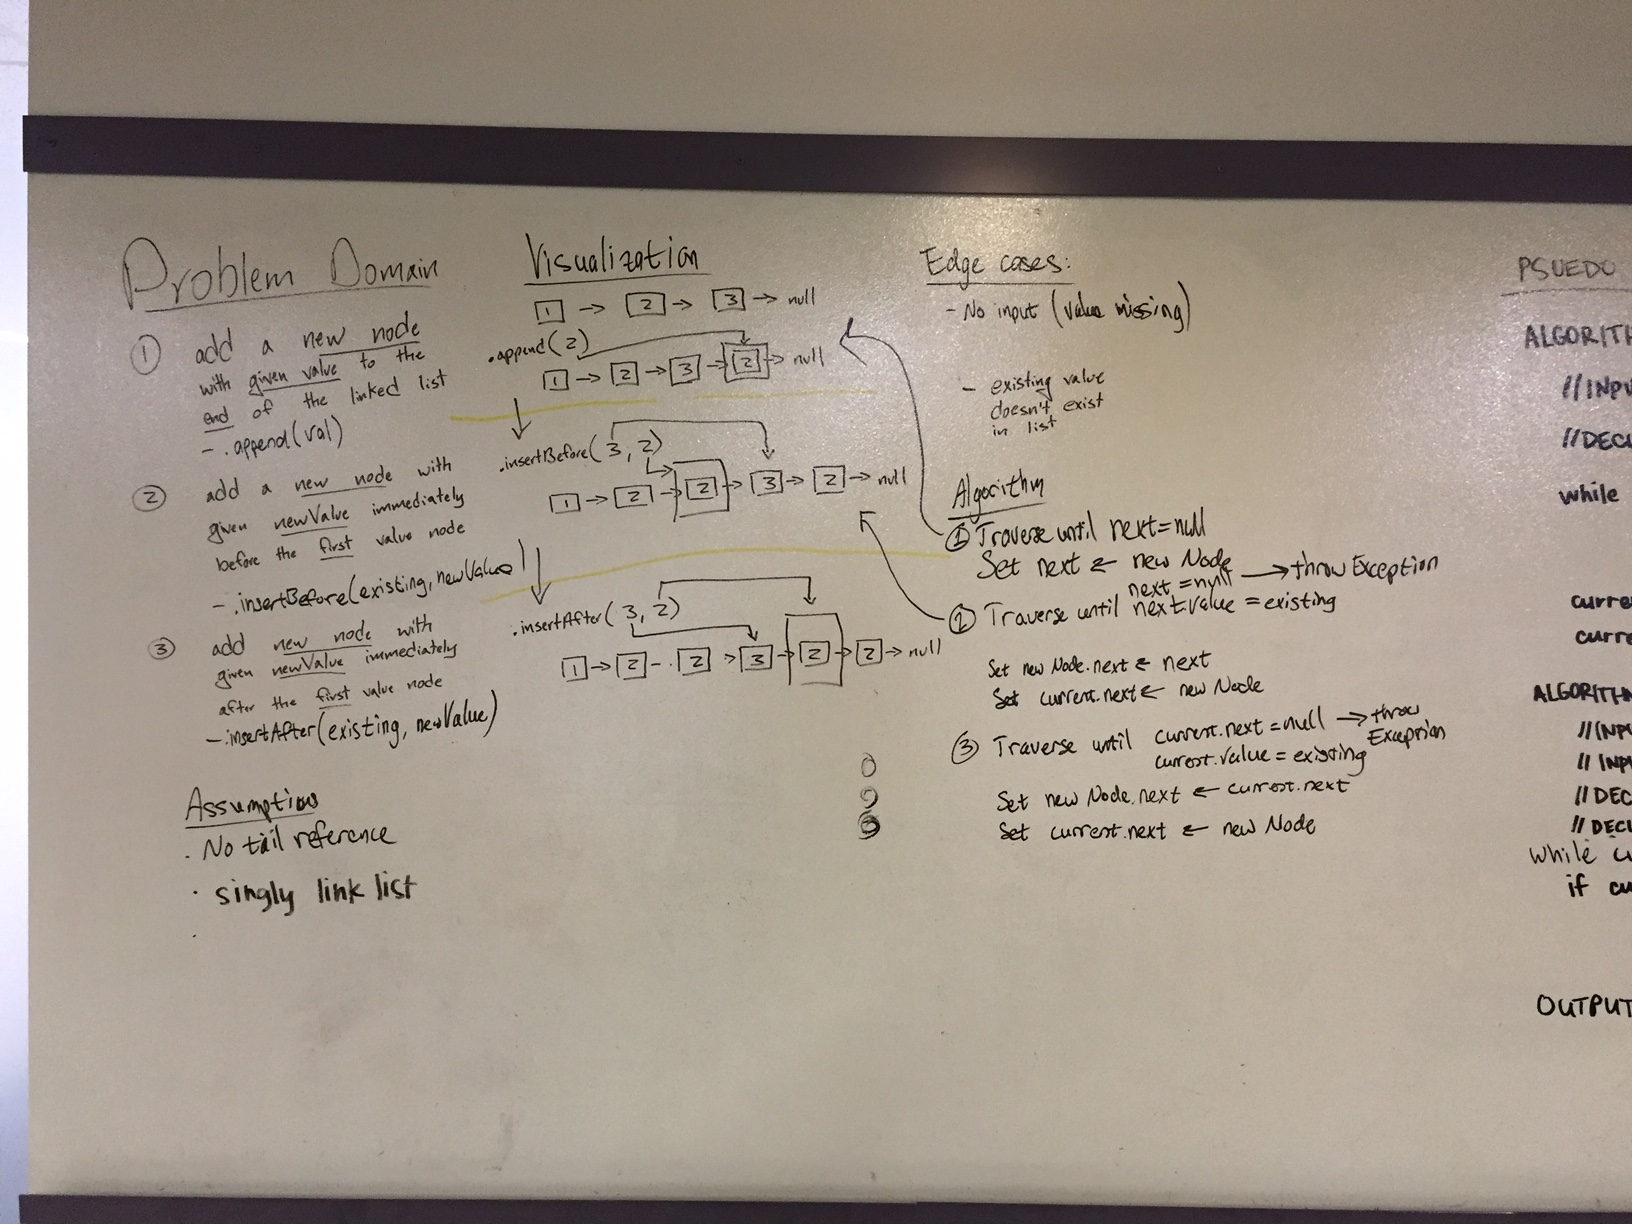 Problem Domain
① add a new node
with given value to the
end of the linked list
- .append(val)
② add a new node with
given newValue immediately
before the first value node
- .insertBefore(existing, newValue)
③ add new node with
given newValue immediately
after the first value node
- .insertAfter(existing, newValue)
Assumptions
· No tail reference
· singly link list
Visualization
1 → 2 → 3 → null
.append(2)
1 → 2 → 3 → 2 → null
.insertBefore(3, 2)
1 → 2 → 2 → 3 → 2 → null
.insertAfter(3, 2)
1 → 2 - · 2 > 3 → 2 → 2 → null
Edge cases:
- No input (value missing)
- existing value
doesn't exist
in list
Algorithm
① Traverse until next = null
Set next ← new Node
next = null → throw Exception
② Traverse until next.value = existing
Set new Node.next ← next
Set current.next ← new Node
③ Traverse until current.next = null → throw
Exception
current.value = existing
Set new Node.next ← current.next
Set current.next ← new Node
PSUEDO
ALGORITH
//INPU
//DECL
while
curre
curre
ALGORITHM
//INPU
// INPU
// DEC
// DECL
while cu
if cu
OUTPUT